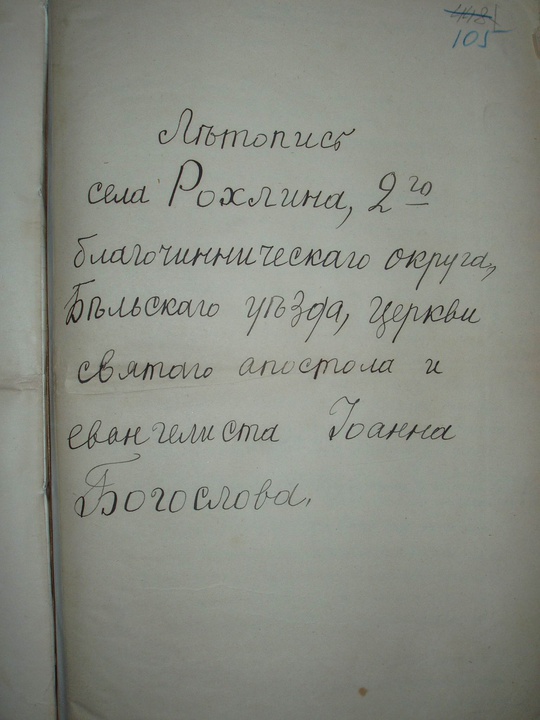 105
Лѣтопись
села Рохлина, 2го
благочинническаго округа,
Бѣльскаго уѣзда, церкви
святаго апостола и
евангелиста Іоанна
Богослова.